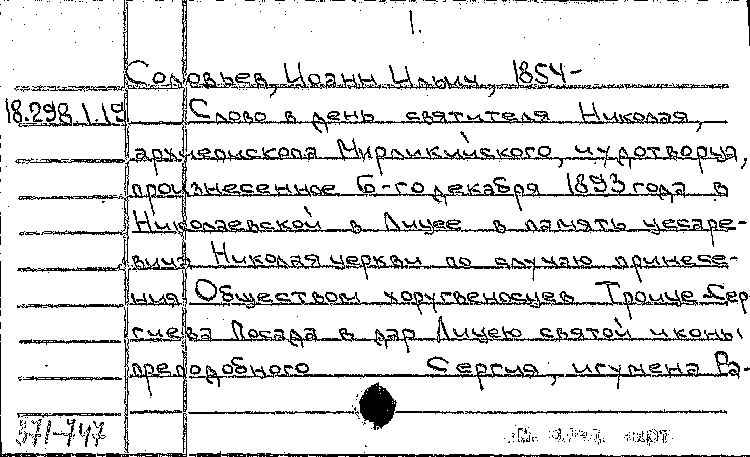 1.
Соловьев, Иоанн Ильич, 1854-
18.298.1.19 Слово в день святителя Николая,
архиепископа Мирликийского, чудотворца,
произнесенное 6-го декабря 1893 года в
Николаевской в Лицее в память цесаре-
вича Николая церкви по случаю принесе-
ния Обществом хоругвеносцев Троице-Сер
гиева Посада в дар Лицею святой иконы
преподобного Сергия, игумена Ра-
371-747